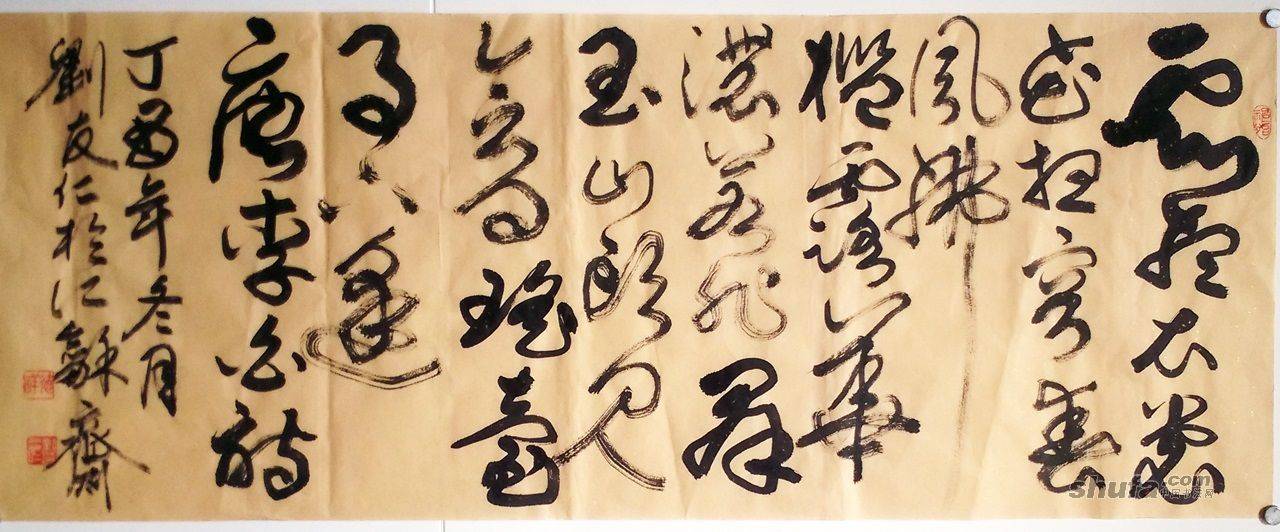 雲想衣裳
花想容春
風拂
檻露華
濃若非群
玉山頭見
會向瑤臺
月下逢
唐李白詩
丁酉年冬月
劉友仁於龢齋
shufa.com
中国书法网